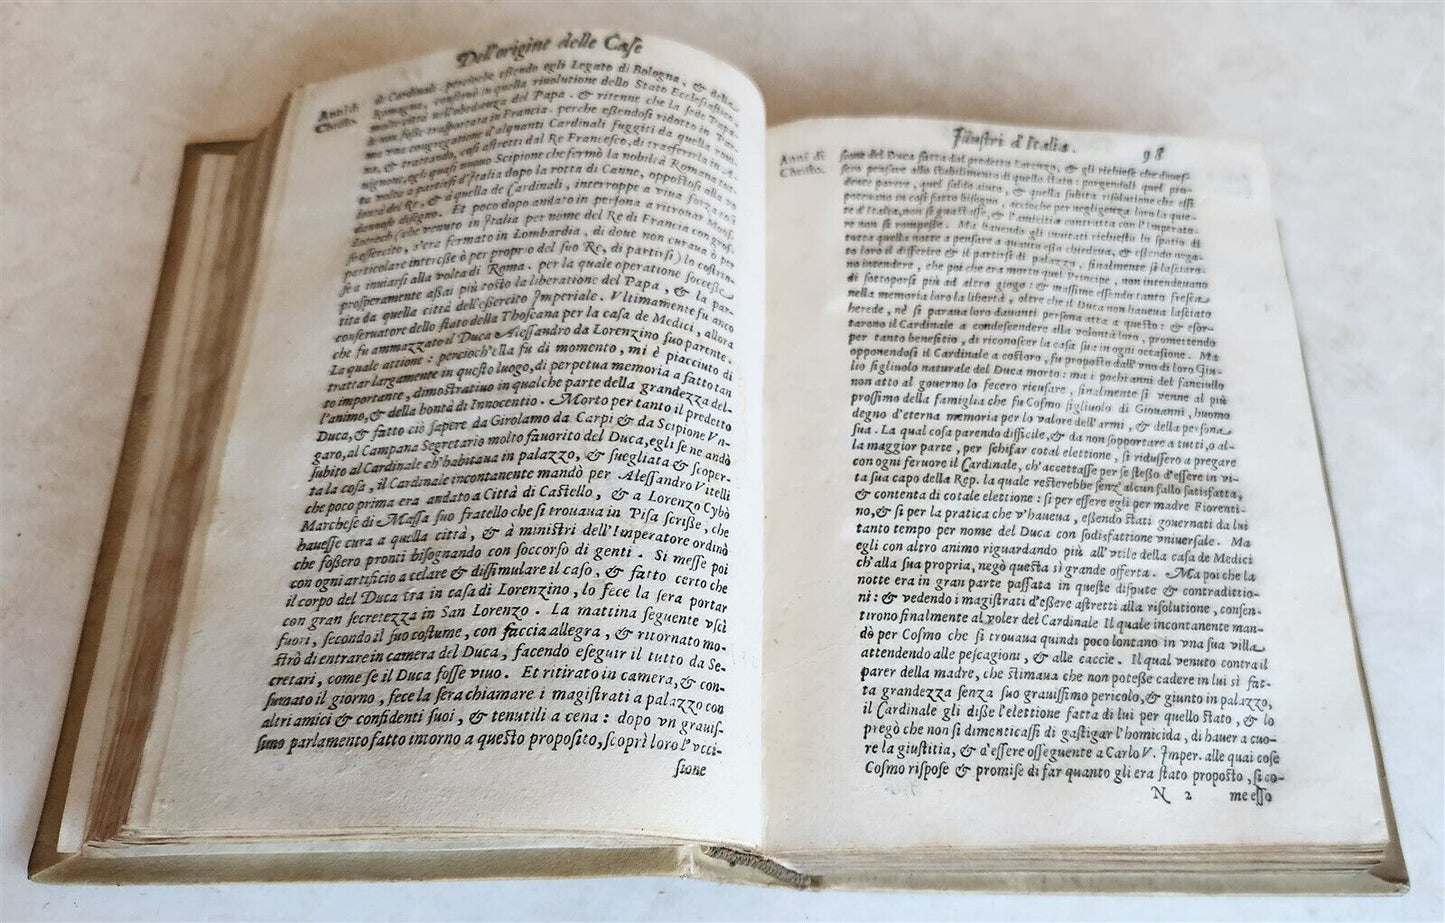 Dell'origine delle Caſe
Anni di
Chriſto.
di Cardinali. percioche eſſendo egli Legato di Bologna, & della
Romagna, conſeruò in quella riuolutione dello Stato Eccleſiaſtico,
molte città nell'obedienza del Papa. & ritenne che la ſede Papa-
le non foſſe traſportata in Francia. perche eſſendoſi ridotto in Par-
ma vna congregatione d'alquanti Cardinali fuggiti da quella roui-
na, & trattando, coſi aſtretti dal Re Franceſco, di trasferirla in A-
uignone, egli quaſi nuouo Scipione che fermò la nobiltà Romana riſo-
luta di partirſi d'Italia dopo la rotta di Canne, oppoſtoſi alla vo
lontà del Re, & a quella de Cardinali, interroppe a viua forza coſi
dannoſo diſegno. Et poco dopo andato in perſona a ritrouar Monſ.
Lotrech (che venuto in Italia per nome del Re di Francia con groſ-
ſo eſſercito, s'era fermato in Lombardia, di doue non curaua ò per
particolare intereſſe ò per proprio del ſuo Re, di partirſi) lo coſtrin-
ſe a inuiarſi alla volta di Roma. per la quale operatione ſucceſſe
proſperamente aſſai più toſto la liberatione del Papa, & la par-
tita da quella città dell'eſſercito Imperiale. Vltimamente fu anco
conſeruatore dello ſtato della Thoſcana per la caſa de Medici, allora
che fu ammazzato il Duca Aleſſandro da Lorenzino ſuo parente.
La quale attione: percioch'ella fu di momento, mi è piacciuto di
trattar largamente in queſto luogo, di perpetua memoria a fatto tan
to importante, dimoſtratiuo in qualche parte della grandezza del-
l'animo, & della bontà di Innocentio. Morto per tanto il predetto
Duca, & fatto ciò ſapere da Girolamo da Carpi & da Scipione Vn-
garo, al Campana Segretario molto fauorito del Duca, egli ſe ne andò
ſubito al Cardinale ch'habitaua in palazzo, & ſuegliata & ſcoper-
ta la coſa, il Cardinale incontanente mandò per Aleſſandro Vitelli
che poco prima era andato a Città di Caſtello, & a Lorenzo Cybò
Marcheſe di Maſſa ſuo fratello che ſi trouaua in Piſa ſcriſſe, che
haueſſe cura a quella città, & à miniſtri dell'Imperatore ordinò
che foſſero pronti biſognando con ſoccorſo di genti. Si meſſe poi
con ogni artificio a celare & diſſimulare il caſo, & fatto certo che
il corpo del Duca era in caſa di Lorenzino, lo fece la ſera portar
con gran ſecretezza in San Lorenzo. La mattina ſeguente vſcì
fuori, ſecondo il ſuo coſtume, con faccia allegra, & ritornato mo-
ſtrò di entrare in camera del Duca, facendo eſeguir il tutto da Se-
cretari, come ſe il Duca foſſe viuo. Et ritirato in camera, & con-
ſumato il giorno, fece la ſera chiamare i magiſtrati a palazzo con
altri amici & confidenti ſuoi, & tenutili a cena: dopo vn grauiſ-
ſimo parlamento fatto intorno a queſto propoſito, ſcoprì loro l'vcci-
ſione
Illuſtri d'Italia.
98
Anni di
Chriſto.
ſione del Duca fatta dal predetto Lorenzo, & gli richieſe che doueſ-
ſero penſare allo ſtabilimento di quello ſtato: porgendoli quel pru-
dente parere, quel ſaldo aiuto, & quella ſubita riſolutione che eſſi
poteuano in caſo fatto biſogno, accioche per negligenza loro la quie-
te d'Italia, non ſi guaſtaſſe, & l'amicitia contratta con l'Imperato-
re non ſi rompeſſe. Ma hauendo gli inuitati richieſto lo ſpatio di
tutta quella notte a penſare a quanto eſſo chiedeua, & eſſendo nega-
to loro il differire & il partirſi di palazzo, finalmente ſi laſciaro-
no intendere, che poi che era morto quel Principe, non intendeuano
di ſottoporſi più ad altro giogo: & maſſime eſſendo tanto freſca
nella memoria loro la libertà, oltre che il Duca non haueua laſciato
herede, nè ſi paraua loro dauanti perſona atta a queſto: & eſor-
tarono il Cardinale a condeſcendere alla volontà loro, promettendo
per tanto benefitio, di riconoſcer la caſa ſua in ogni occaſione. Ma
opponendoſi il Cardinale a coſtoro, fu propoſto dall'vno di loro Giu-
lio figliuolo naturale del Duca morto: ma i pochi anni del fanciullo
non atto al gouerno lo fecero ricuſare, finalmente ſi venne al più
proſſimo della famiglia che fu Coſmo figliuolo di Giouanni, huomo
degno d'eterna memoria per lo valore dell'armi, & della perſona
ſua. La qual coſa parendo difficile, & da non ſopportare a tutti, o al-
la maggior parte, per ſchifar cotal elettione, ſi riduſſero a pregare
con ogni feruore il Cardinale, ch'accettaſſe per ſe ſteſſo d'eſſere in vi-
ta ſua capo della Rep. la quale reſterebbe ſenz'alcun fallo ſatisfatta,
& contenta di cotale elettione: ſi per eſſere egli per madre Fiorenti-
no, & ſi per la pratica che v'haueua, eſſendo ſtati gouernati da lui
tanto tempo per nome del Duca con ſodisfattione vniuerſale. Ma
egli con altro animo riguardando più all'vtile della caſa de Medici
ch'alla ſua propria, negò queſta sì grande offerta. Ma poi che la
notte era in gran parte paſſata in queſte diſpute & contradittio-
ni: & vedendo i magiſtrati d'eſſere aſtretti alla riſolutione, conſen-
tirono finalmente al voler del Cardinale Il quale incontanente man-
dò per Coſmo che ſi trouaua quindi poco lontano in vna ſua villa
attendendo alle peſcagioni, & alle caccie. Il qual venuto contra il
parer della madre, che ſtimaua che non poteſſe cadere in lui ſì fat-
ta grandezza ſenza ſuo grauiſſimo pericolo, & giunto in palazzo,
il Cardinale gli diſſe l'elettione fatta di lui per quello ſtato, & lo
pregò che non ſi dimenticaſſi di gaſtigar l'homicida, di hauer a cuo-
re la giuſtitia, & d'eſſere oſſeguente a Carlo V. Imper. alle quai coſe
Coſmo riſpoſe & promiſe di far quanto gli era ſtato propoſto, ſi co-
N 2
me eſſo